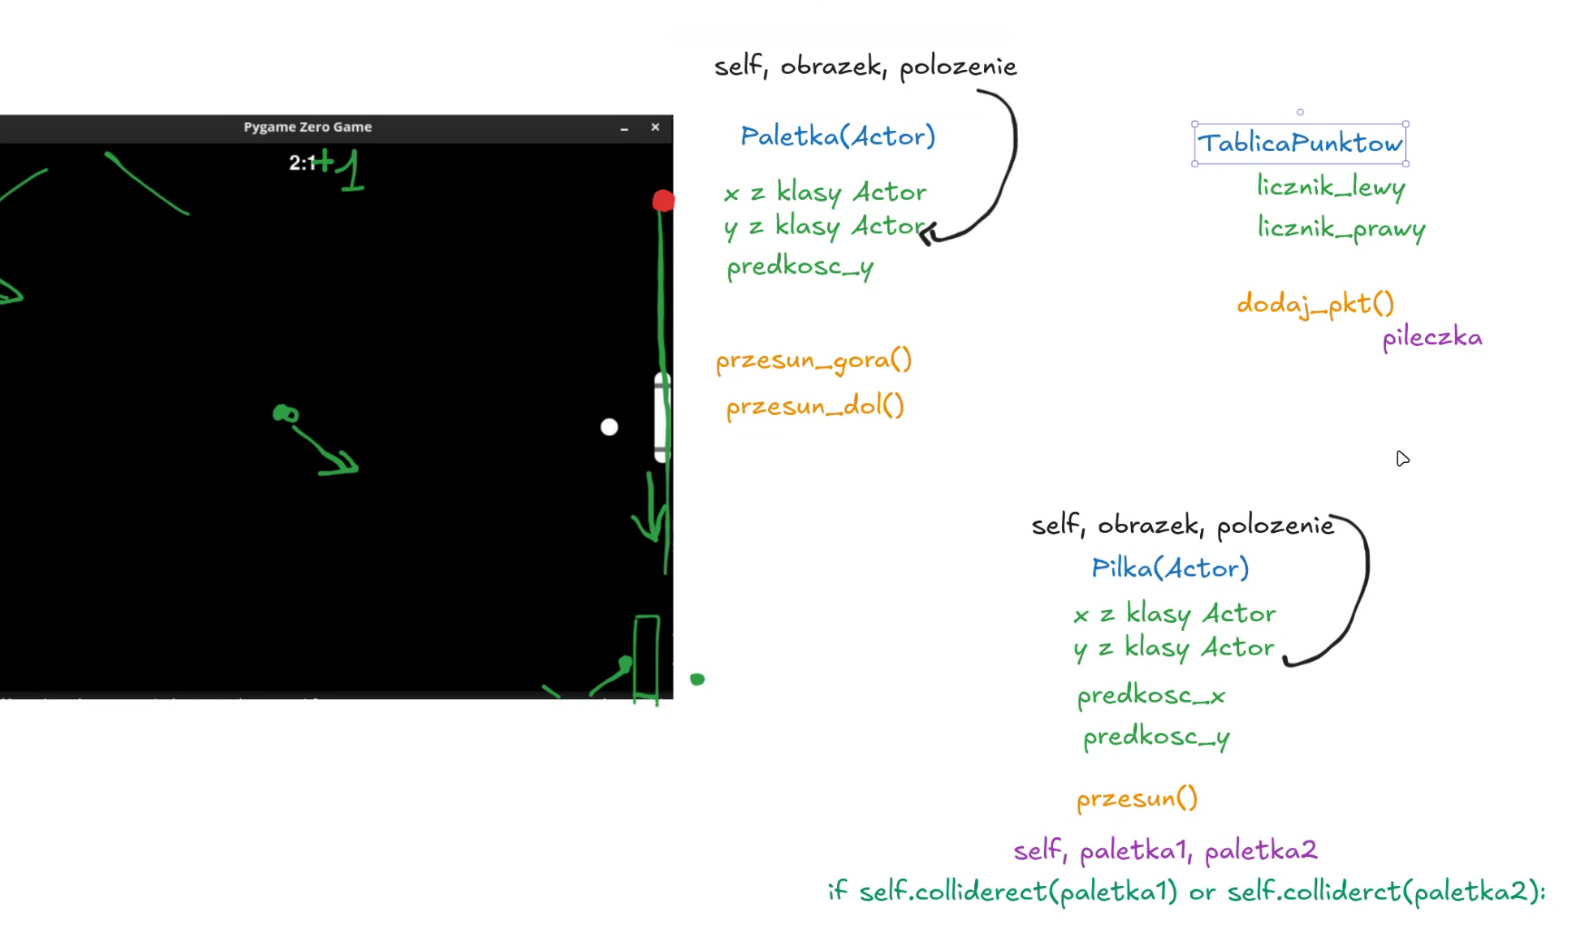 Pygame Zero Game
2:1+1
self, obrazek, polozenie
Paletka(Actor)
x z klasy Actor
y z klasy Actor
predkosc_y
przesun_gora()
przesun_dol()
TablicaPunktow
licznik_lewy
licznik_prawy
dodaj_pkt()
pileczka
self, obrazek, polozenie
Pilka(Actor)
x z klasy Actor
y z klasy Actor
predkosc_x
predkosc_y
przesun()
self, paletka1, paletka2
if self.colliderect(paletka1) or self.colliderct(paletka2):